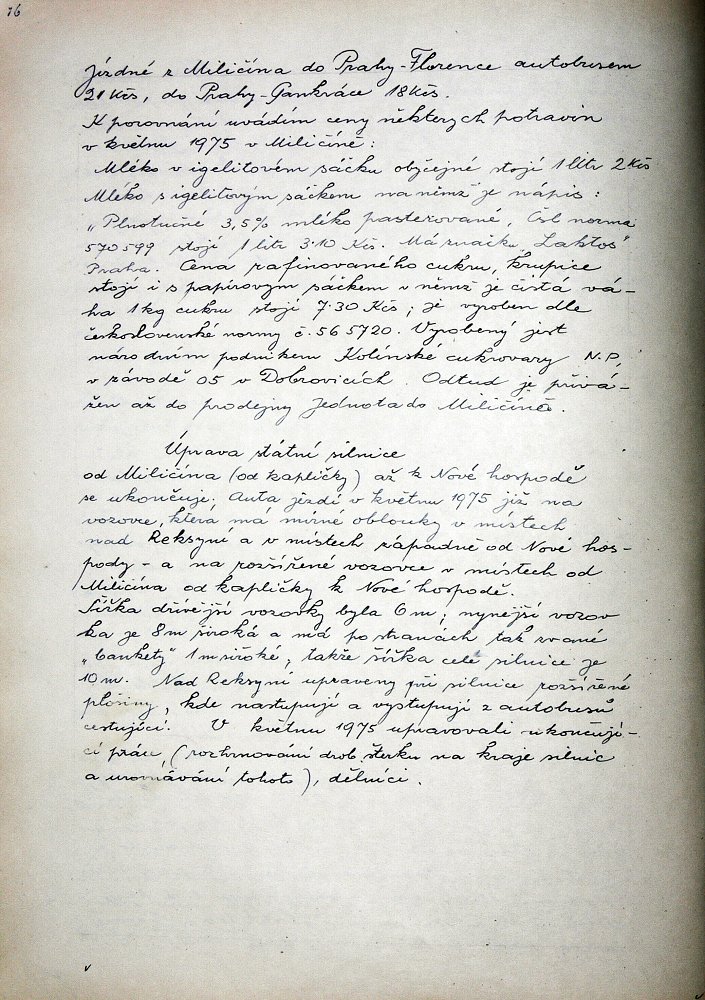 76
Jízdné z Miličína do Prahy-Florence autobusem
21 Kčs, do Prahy-Pankráce 18 Kčs.
K porovnání uvádím ceny některých potravin
v květnu 1975 v Miličíně:
Mléko v igelitovém sáčku obyčejné stojí 1 litr 2 Kčs
Mléko s igelitovým sáčkem na němž je nápis:
„Plnotučné 3,5% mléko pasterované, Čsl norma
570599 stojí 1 litr 3·10 Kčs. Má značku „Laktos"
Praha. Cena rafinovaného cukru, krupice
stojí i s papírovým sáčkem v němž je čistá vá-
ha 1 kg cukru stojí 7·30 Kčs; je vyroben dle
československé normy č. 56 5720. Vyrobený jest
národním podnikem Kolínské cukrovary N.P,
v závodě 05 v Dobrovicích. Odtud je přivá-
žen až do prodejny Jednota do Miličína.
Úprava státní silnice
od Miličína (od kapličky) až k Nové hospodě
se ukončuje. Auta jezdí v květnu 1975 již na
vozovce, která má mírné oblouky v místech
nad Reksyní a v místech západně od Nové hos-
pody - a na rozšířené vozovce v místech od
Miličína od kapličky k Nové hospodě.
Šířka dřívější vozovky byla 6 m; nynější vozov
ka je 8 m široká a má po stranách tak zvané
„bankety" 1 m široké, takže šířka celé silnice je
10 m. Nad Reksyní upraveny při silnice rozšířené
plošiny, kde nastupují a vystupují z autobusů
cestující. V květnu 1975 upravovali ukončují-
cí práce, (rozhrnování drob. štěrku na kraje silnic
a urovnávání tohoto), dělníci.